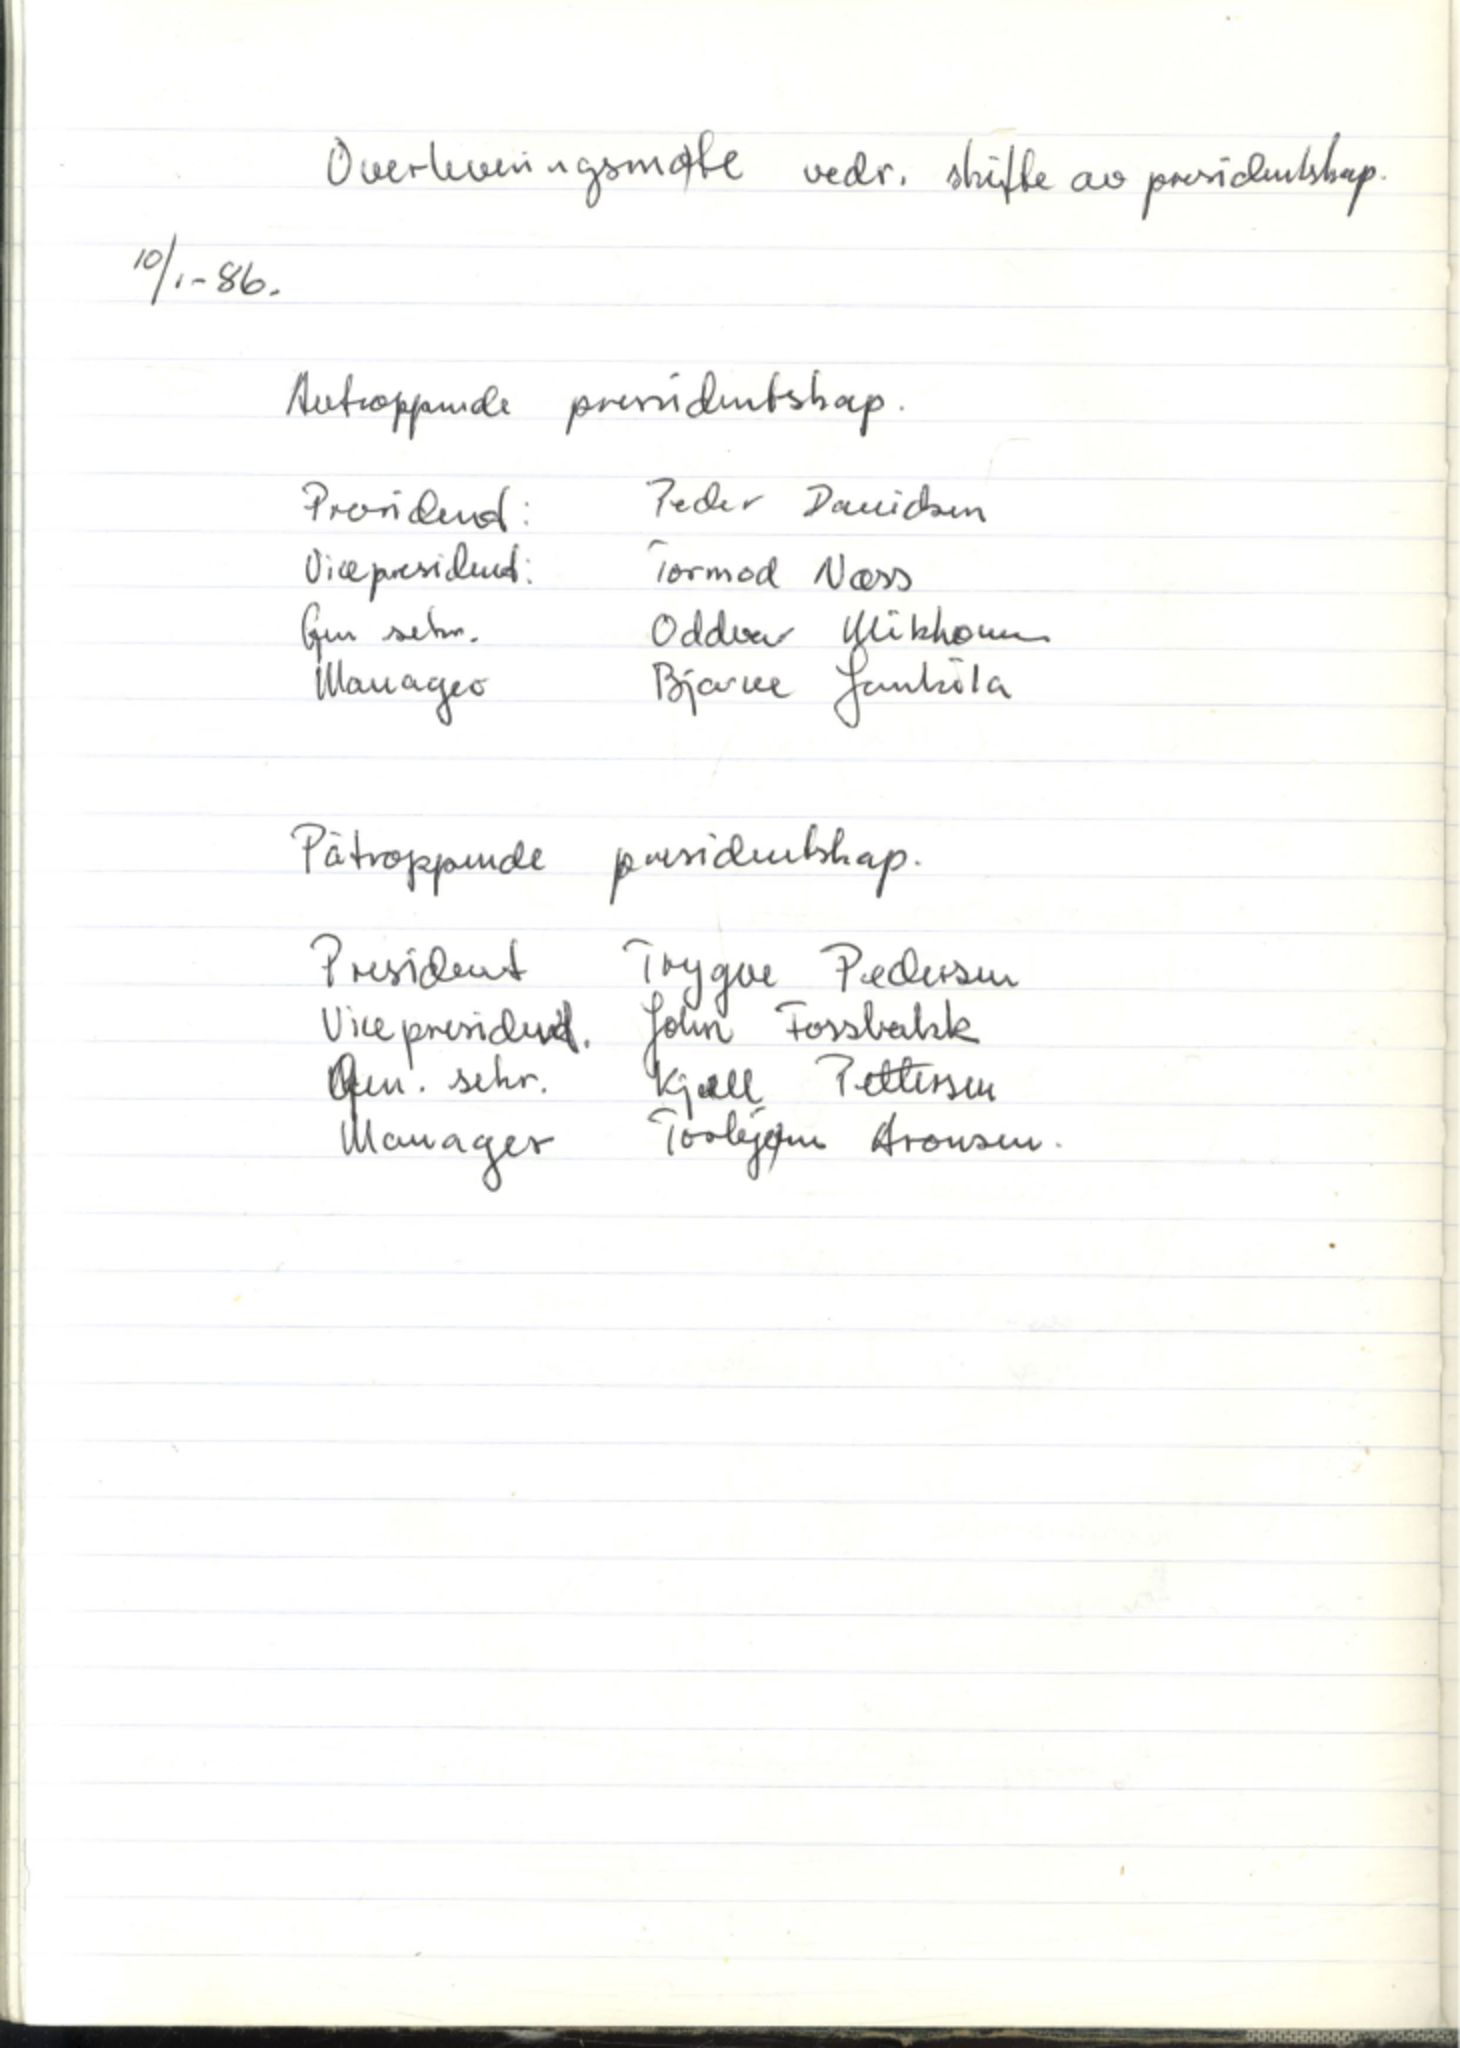 Overleveringsmøte vedr. skifte av presidentskap.
10/1-86.
Avtroppende presidentskap.
President: Peder Davidsen
Vicepresident: Tormod Næss
Gen sekr. Oddvar
Manager Bjarne Jankila
Påtroppende presidentskap.
President Trygve Pedersen
Vicepresident. John Fossbakk
Gen. sekr. Kjell Pettersen
Manager Torbjørn Aronsen.